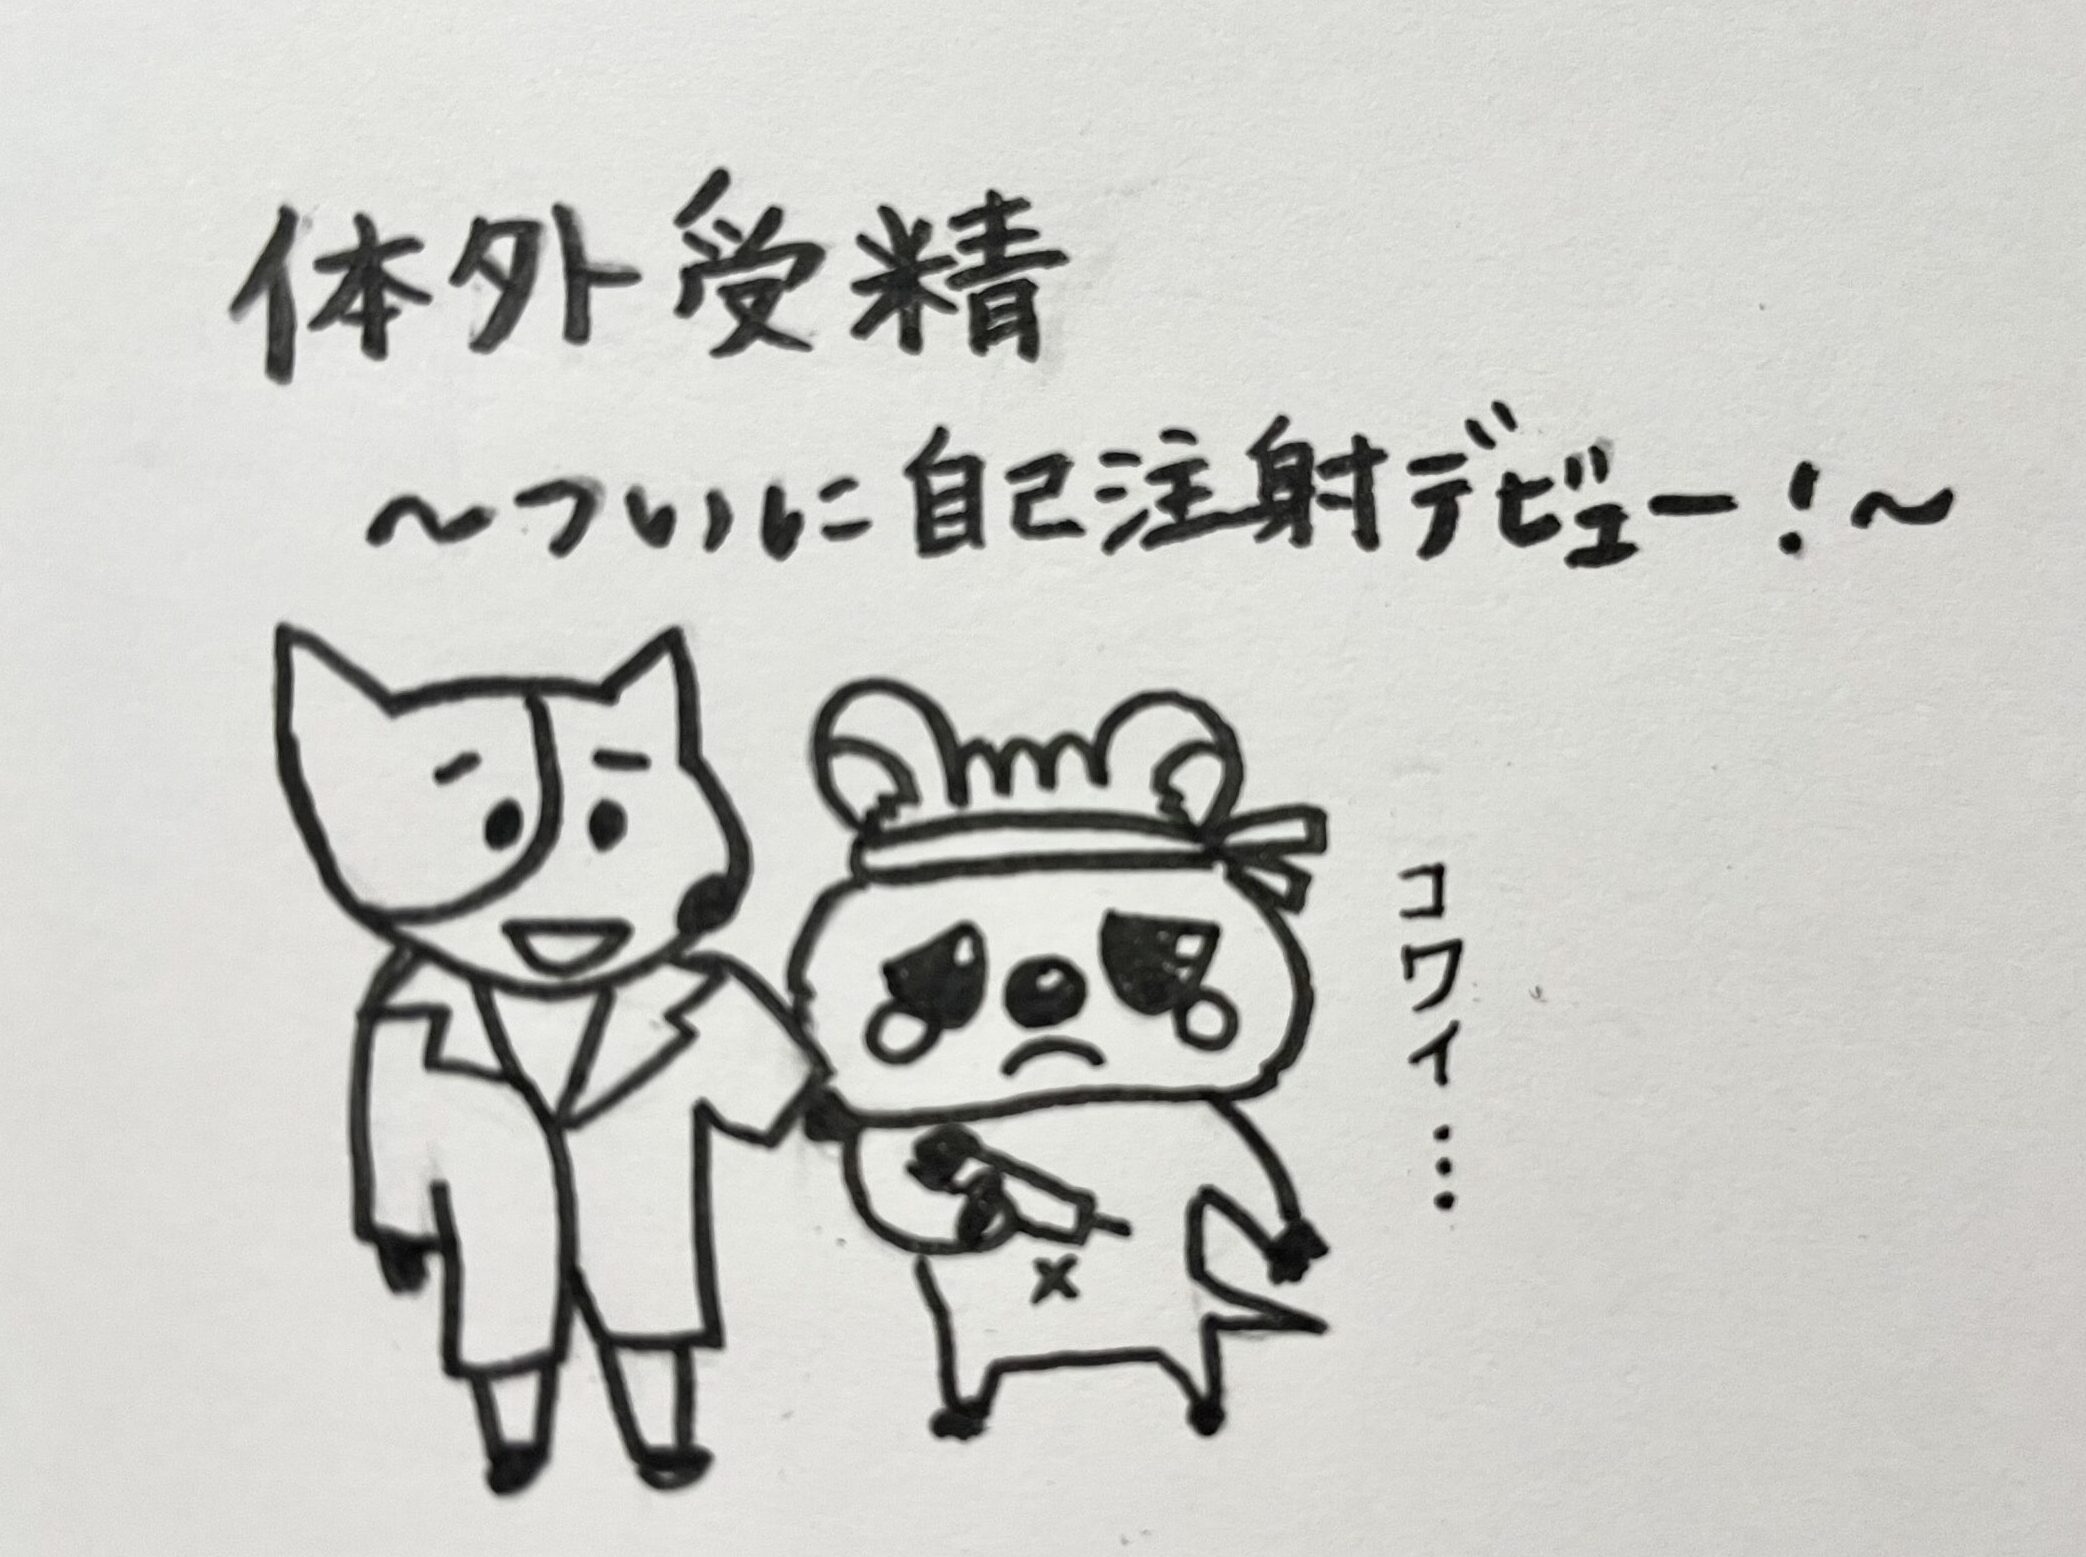 体外受精
～ついに自己注射デビュー！～
コワイ…